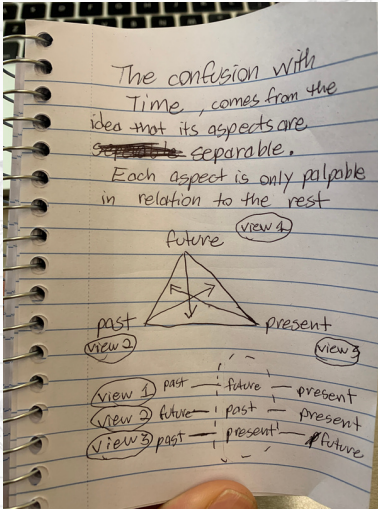 The confusion with
Time, comes from the
idea that its aspects are
separable.
Each aspect is only palpable
in relation to the rest
view 1
future
past
present
view 2
view 3
view 1 past — future — present
view 2 future — past — present
view 3 past — present — future